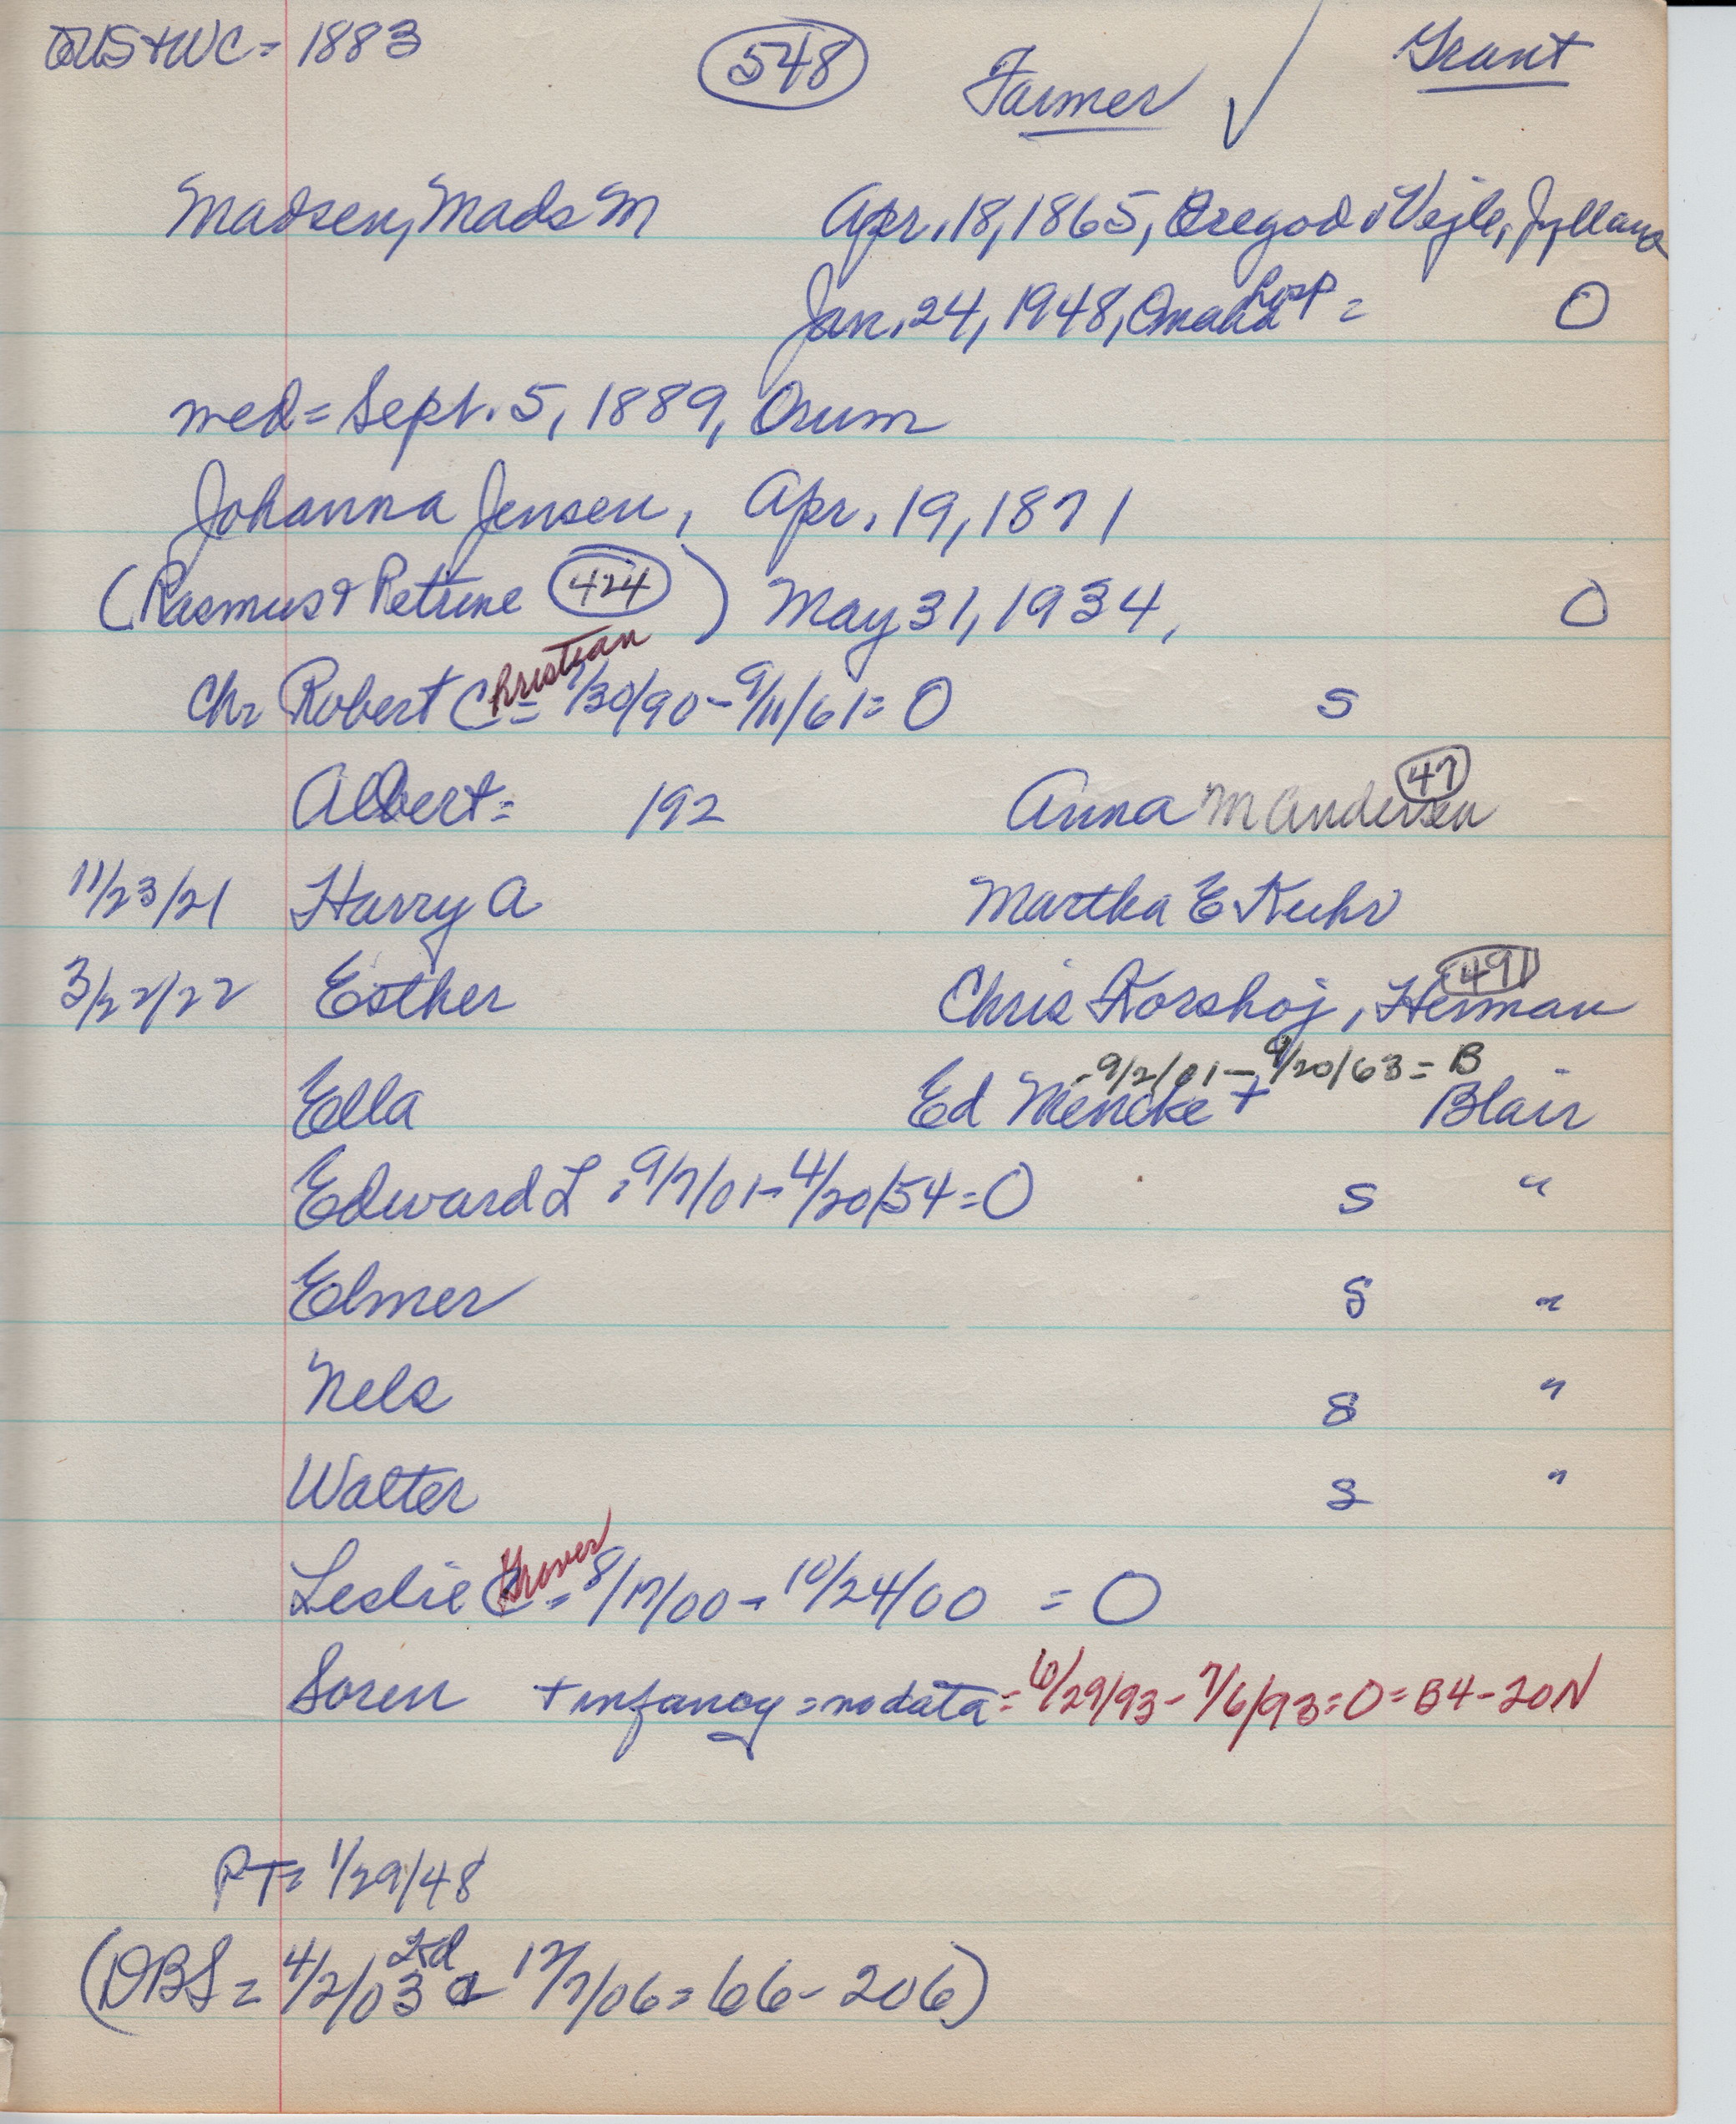 US+WC = 1883 548 Farmer ✓ Grant
Madsen, Mads M Apr. 18, 1865, Vejle, Jylland
Jan. 24, 1948, Omaha Hosp = O
med = Sept. 5, 1889, Orum
Johanna Jensen, Apr. 19, 1871
(Rasmus & Petrine 424) May 31, 1934, O
Chr Robert Christian = 7/30/90 - 9/11/61 = O S
Albert = 192 Anna M Andersen 47
11/23/21 Harry A Martha E Kuhr
3/22/22 Esther Chris Korshoj, Herman 491
- 9/2/01 - 9/20/63 = B
Ella Ed Mencke + Blair
Edward L = 9/7/01 - 4/20/54 = O S "
Elmer S "
Nels S "
Walter S "
Leslie Grover = 8/17/00 - 10/24/00 = O
Soren + infancy = no data = 6/29/93 - 7/6/93 = O = B4 - 20N
PT = 1/29/48
(DBS = 4/2/03 2d 12/7/06 = 66 - 206)